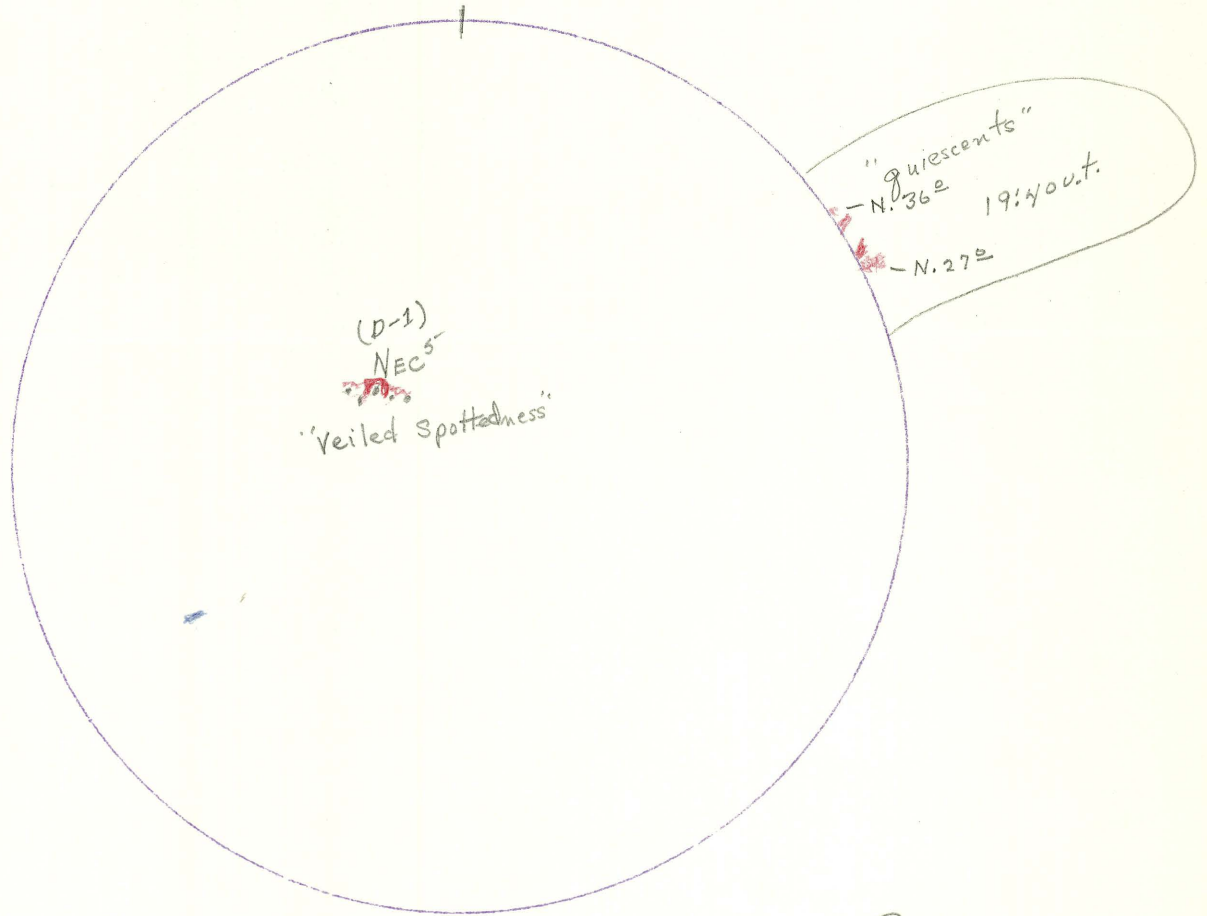 "quiescents"
- N. 36º
19:40 U.T.
- N. 27º
(D-1)
NEC⁵
"Veiled Spottedness"